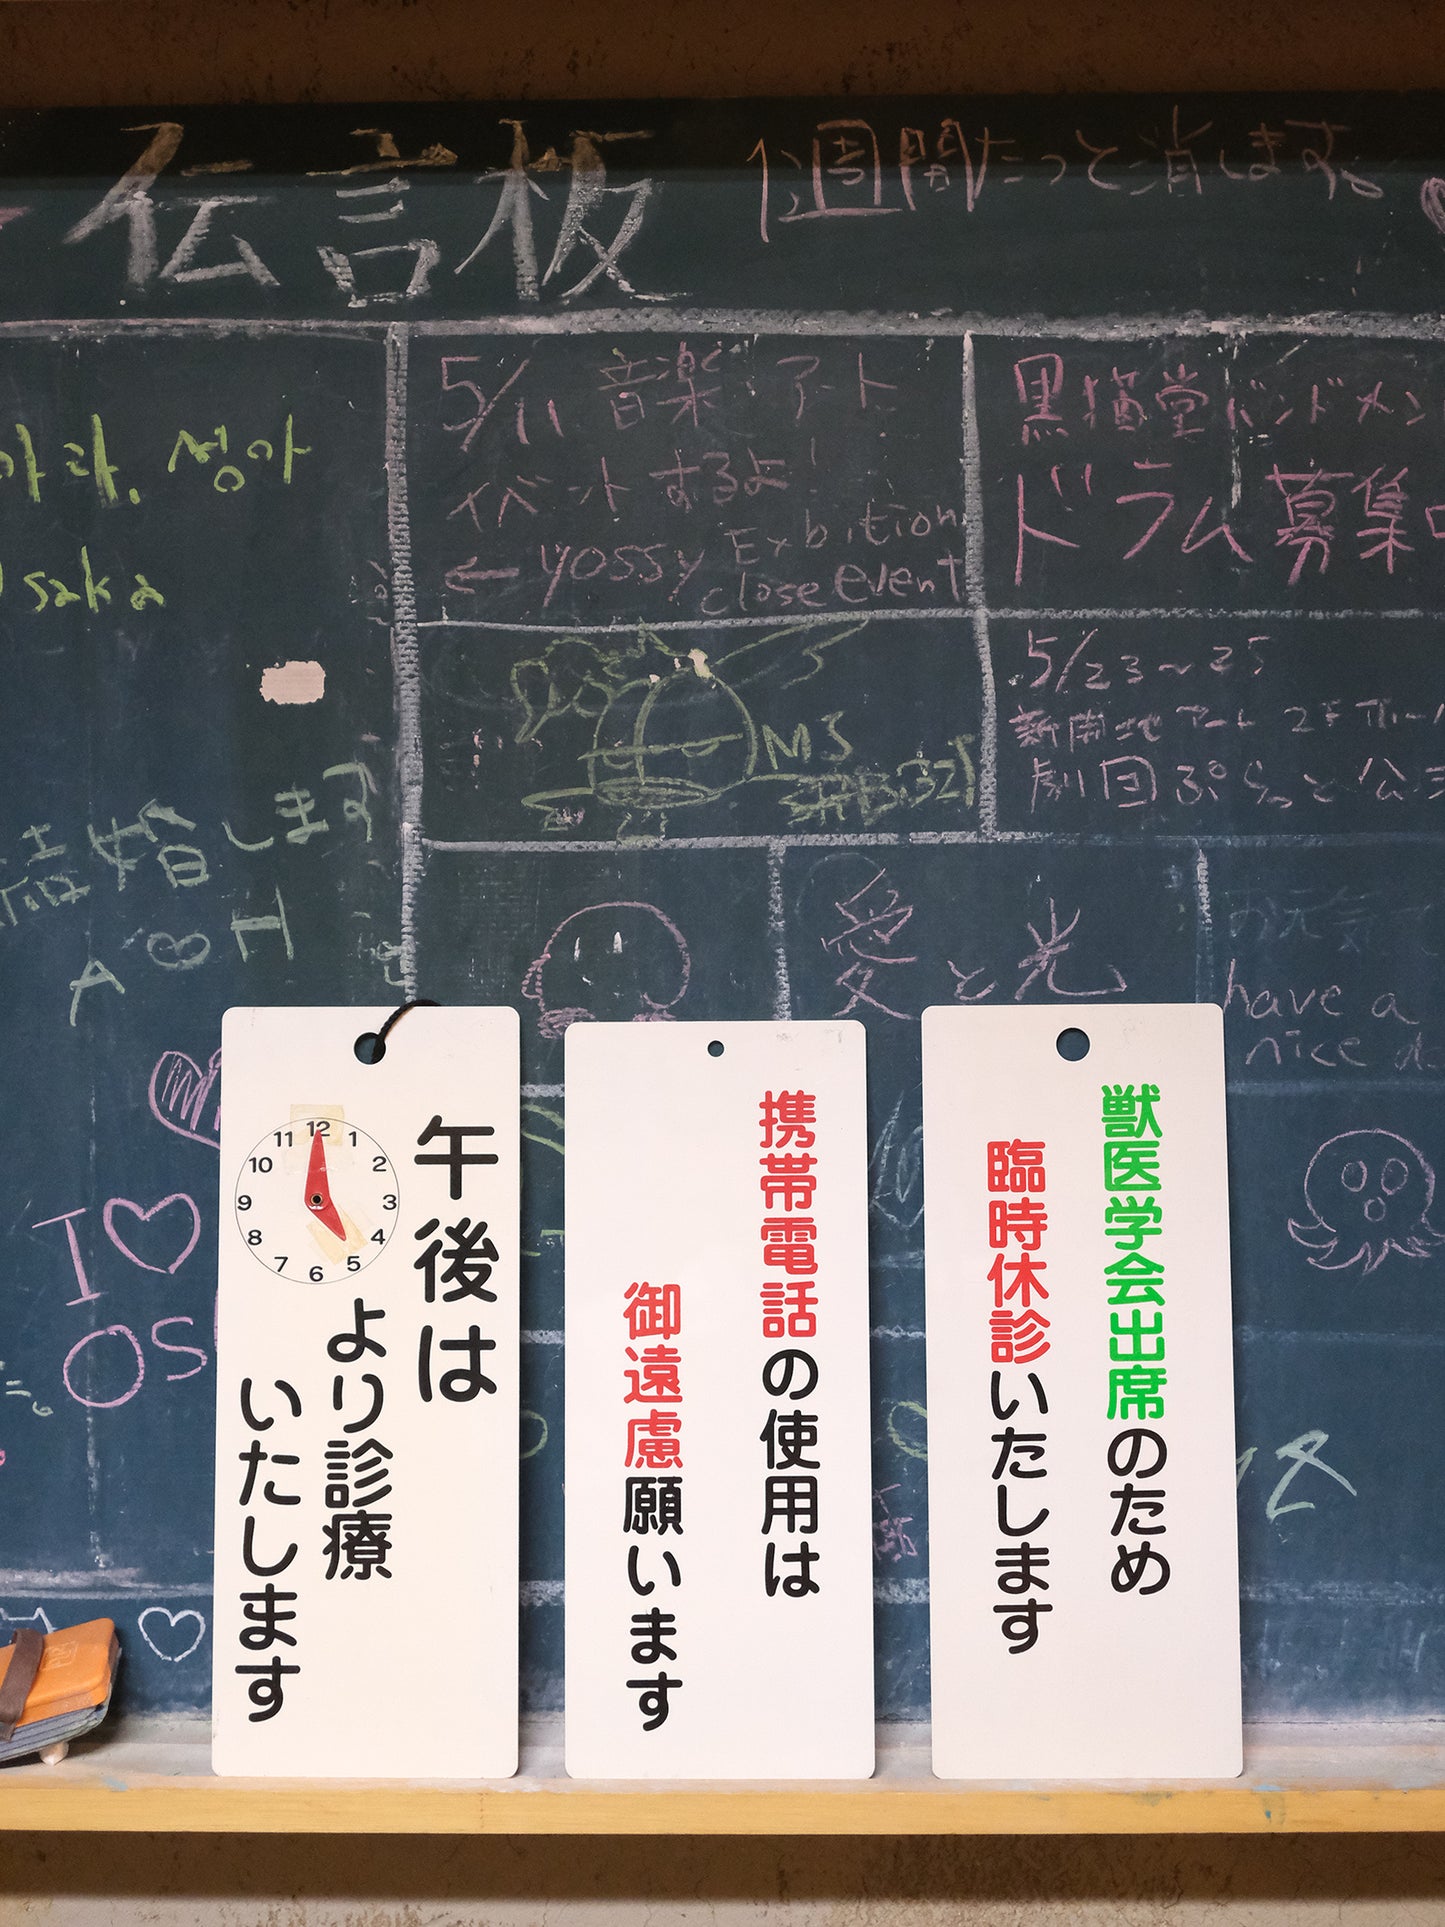 伝言板
1週間たつと消します。
성아
Osaka
結婚します
A ♡ H
5/11 音楽 アート
イベントするよ!
← yossy Exbition
close event
黒猫堂バンドメン
ドラム募集
5/23~25
新開地アート
劇団ぷらっと公
愛と光
have a
nice
I ♡
OS
午後は
12
1
2
3
4
5
6
7
8
9
10
11
より診療
いたします
携帯電話の使用は
御遠慮願います
獣医学会出席のため
臨時休診いたします